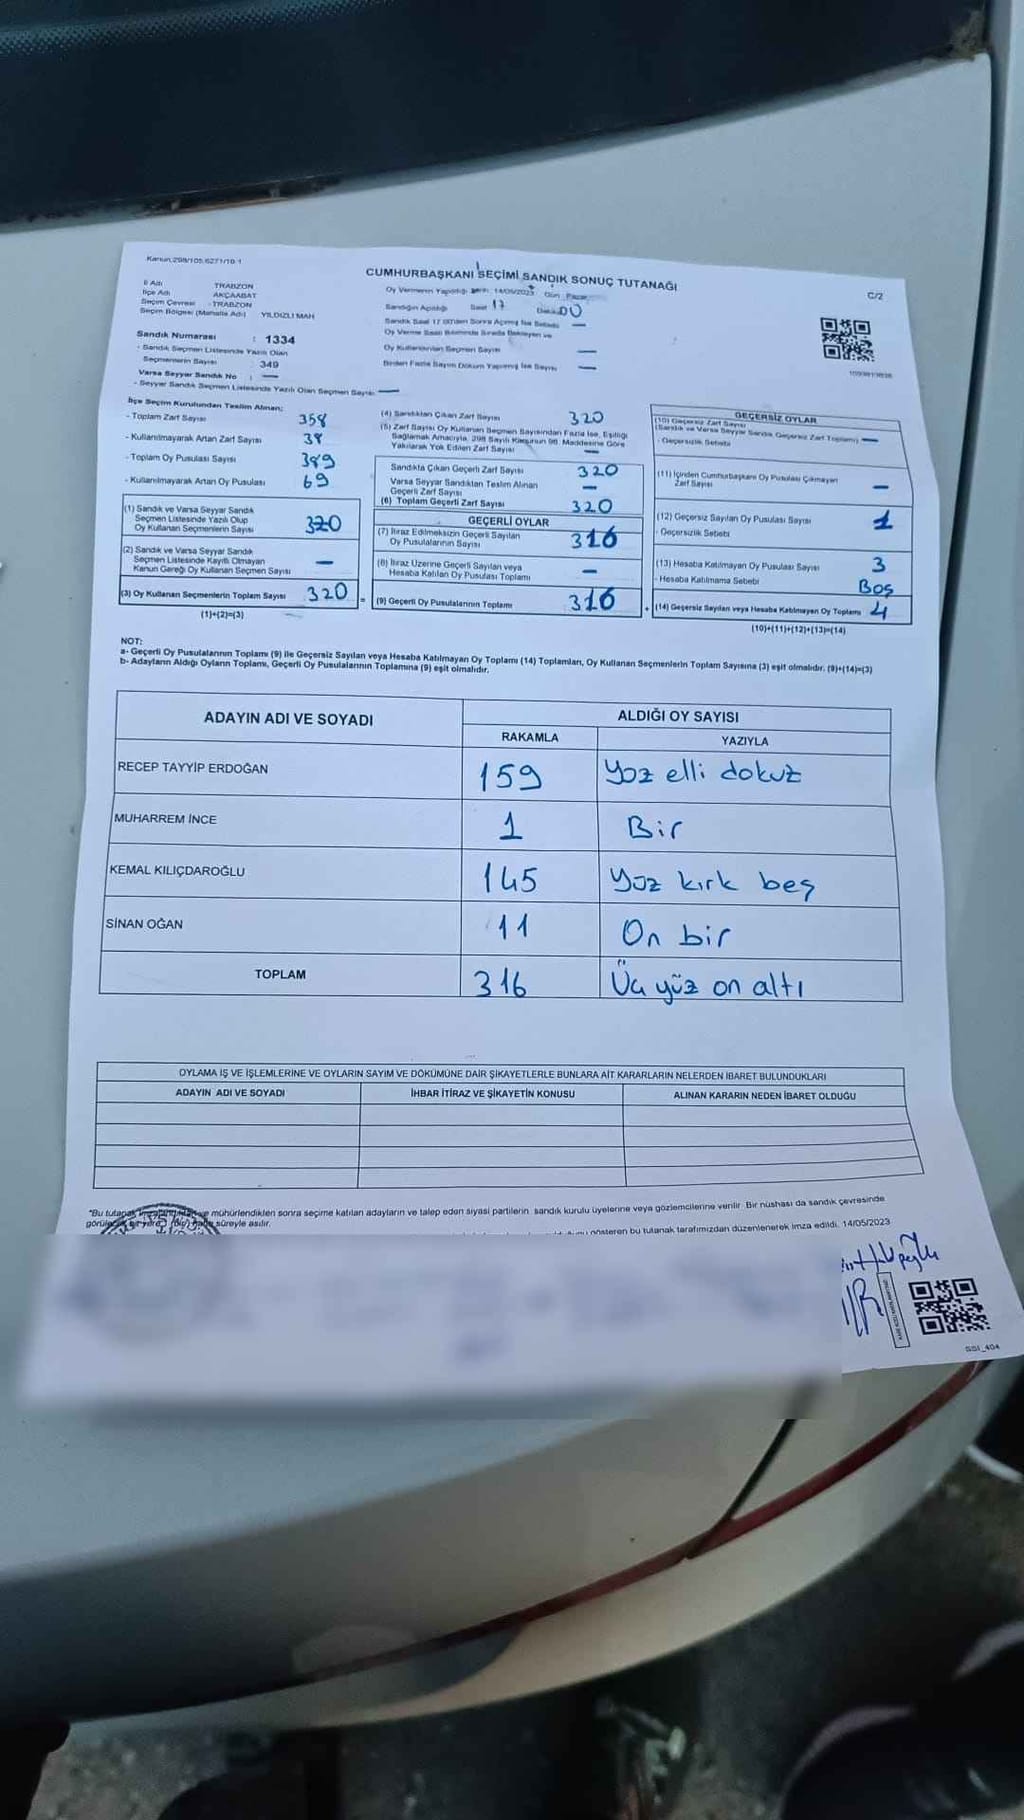 Kanun:298/105,6271/10-1
CUMHURBAŞKANI SEÇİMİ SANDIK SONUÇ TUTANAĞI
C/2
İl Adı TRABZON
İlçe Adı AKÇAABAT
Seçim Çevresi TRABZON
Seçim Bölgesi (Mahalle Adı) YILDIZLI MAH
Oy Vermenin Yapıldığı Tarih: 14/05/2023 Gün Pazar
Sandığın Açıldığı Saat 17 Dakika 00
Sandık Saat 17:00'den Sonra Açılmış İse Sebebi —
Oy Verme Saati Bitiminde Sırada Bekleyen ve
Oy Kullandırılan Seçmen Sayısı —
Birden Fazla Sayım Döküm Yapılmış İse Sayısı —
Sandık Numarası : 1334
- Sandık Seçmen Listesinde Yazılı Olan
Seçmenlerin Sayısı : 349
Varsa Seyyar Sandık No : —
- Seyyar Sandık Seçmen Listesinde Yazılı Olan Seçmen Sayısı —
İlçe Seçim Kurulundan Teslim Alınan;
- Toplam Zarf Sayısı 358
- Kullanılmayarak Artan Zarf Sayısı 38
- Toplam Oy Pusulası Sayısı 389
- Kullanılmayarak Artan Oy Pusulası 69
(1) Sandık ve Varsa Seyyar Sandık
Seçmen Listesinde Yazılı Olup
Oy Kullanan Seçmenlerin Sayısı 320
(2) Sandık ve Varsa Seyyar Sandık
Seçmen Listesinde Kayıtlı Olmayan
Kanun Gereği Oy Kullanan Seçmen Sayısı —
(3) Oy Kullanan Seçmenlerin Toplam Sayısı 320
(1)+(2)=(3)
(4) Sandıktan Çıkan Zarf Sayısı 320
(5) Zarf Sayısı Oy Kullanan Seçmen Sayısından Fazla İse, Eşitliği
Sağlamak Amacıyla, 298 Sayılı Kanunun 98. Maddesine Göre
Yakılarak Yok Edilen Zarf Sayısı —
Sandıkta Çıkan Geçerli Zarf Sayısı 320
Varsa Seyyar Sandıktan Teslim Alınan
Geçerli Zarf Sayısı —
(6) Toplam Geçerli Zarf Sayısı 320
GEÇERLİ OYLAR
(7) İtiraz Edilmeksizin Geçerli Sayılan
Oy Pusulalarının Sayısı 316
(8) İtiraz Üzerine Geçerli Sayılan veya
Hesaba Katılan Oy Pusulası Toplamı —
= (9) Geçerli Oy Pusulalarının Toplamı 316
GEÇERSİZ OYLAR
(10) Geçersiz Zarf Sayısı
(Sandık ve Varsa Seyyar Sandık Geçersiz Zarf Toplamı) —
- Geçersizlik Sebebi
(11) İçinden Cumhurbaşkanı Oy Pusulası Çıkmayan
Zarf Sayısı —
(12) Geçersiz Sayılan Oy Pusulası Sayısı 1
- Geçersizlik Sebebi
(13) Hesaba Katılmayan Oy Pusulası Sayısı 3
- Hesaba Katılmama Sebebi Boş
+ (14) Geçersiz Sayılan veya Hesaba Katılmayan Oy Toplamı 4
(10)+(11)+(12)+(13)=(14)
NOT:
a- Geçerli Oy Pusulasının Toplamı (9) ile Geçersiz Sayılan veya Hesaba Katılmayan Oy Toplamı (14) Toplamları, Oy Kullanan Seçmenlerin Toplam Sayısına (3) eşit olmalıdır. (9)+(14)=(3)
b- Adayların Aldığı Oyların Toplamı, Geçerli Oy Pusulalarının Toplamına (9) eşit olmalıdır.
ADAYIN ADI VE SOYADI ALDIĞI OY SAYISI
RAKAMLA YAZIYLA
RECEP TAYYİP ERDOĞAN 159 Yüz elli dokuz
MUHARREM İNCE 1 Bir
KEMAL KILIÇDAROĞLU 145 Yüz kırk beş
SİNAN OĞAN 11 On bir
TOPLAM 316 Üç yüz on altı
OYLAMA İŞ VE İŞLEMLERİNE VE OYLARIN SAYIM VE DÖKÜMÜNE DAİR ŞİKAYETLERLE BUNLARA AİT KARARLARIN NELERDEN İBARET BULUNDUKLARI
ADAYIN ADI VE SOYADI İHBAR İTİRAZ VE ŞİKAYETİN KONUSU ALINAN KARARIN NEDEN İBARET OLDUĞU
"Bu tutanak mühürlendikten sonra seçime katılan adayların ve talep eden siyasi partilerin sandık kurulu üyelerine veya gözlemcilerine verilir. Bir nüshası da sandık çevresinde
süreyle asılır.
gösteren bu tutanak tarafımızdan düzenlenerek imza edildi. 14/05/2023